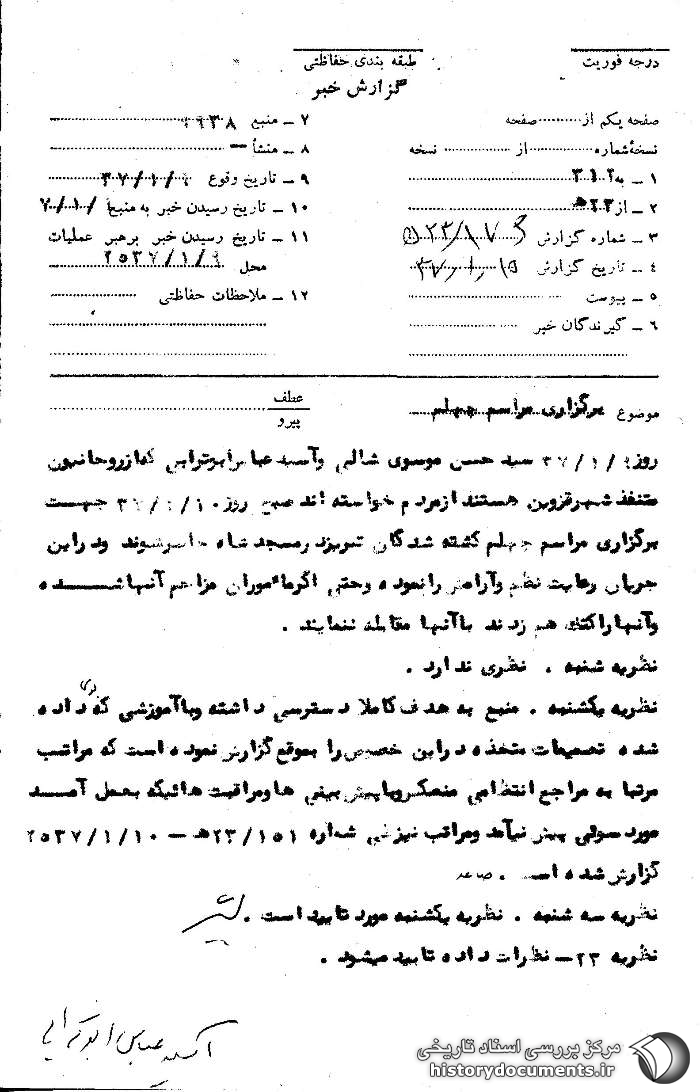 درجه فوریت
طبقه بندی حفاظتی
گزارش خبر
صفحه یکم از ........ صفحه
نسخهٔ شماره ........ از ........ نسخه
۱ ــ به ۳۱۲
۲ ــ از ۲۳ه‍
۳ ــ شماره گزارش
۴ ــ تاریخ گزارش
۵ ــ پیوست
۶ ــ گیرندگان خبر
۷ ــ منبع
۸ ــ منشأ ــ
۹ ــ تاریخ وقوع
۱۰ ــ تاریخ رسیدن خبر به منبع
۱۱ ــ تاریخ رسیدن خبر برهبر عملیات
محل ۲۵۳۷/۱/۹
۱۲ ــ ملاحظات حفاظتی
موضوع برگزاری مراسم چهلم
عطف
پیرو
روز ۹/۱/۳۷ سید حسن موسوی شالی و آسید عباس ابوترابی که از روحانیون
متنفذ شهر قزوین هستند از مردم خواسته اند صبح روز ۱۰/۱/۳۷ جهت
برگزاری مراسم چهلم کشته شدگان تبریز در مسجد شاه حاضر شوند و در این
جریان رعایت نظم و آرامش را نموده و حتی اگر مأموران مزاحم آنها شده
و آنها را کتک هم زدند با آنها مقابله ننمایند .
نظریه شنبه . نظری ندارد .
نظریه یکشنبه . منبع به هدف کاملا دسترسی داشته و با آموزشی که داده
شده تصمیمات متخذه در این خصوص را بموقع گزارش نموده است که مراتب
مرتبا به مراجع انتظامی منعکس و با پیش بینی ها و مراقبت هائیکه بعمل آمد
مورد سوئی پیش نیامد و مراتب نیز طی شماره ۲۳/۱۵۱ه‍ ــ ۲۵۳۷/۱/۱۰
گزارش شده است .
نظریه سه شنبه . نظریه یکشنبه مورد تایید است .
نظریه ۲۳ــ نظرات داده تایید میشود .
آسید عباس ابوترابی
مرکز بررسی اسناد تاریخی
historydocuments.ir